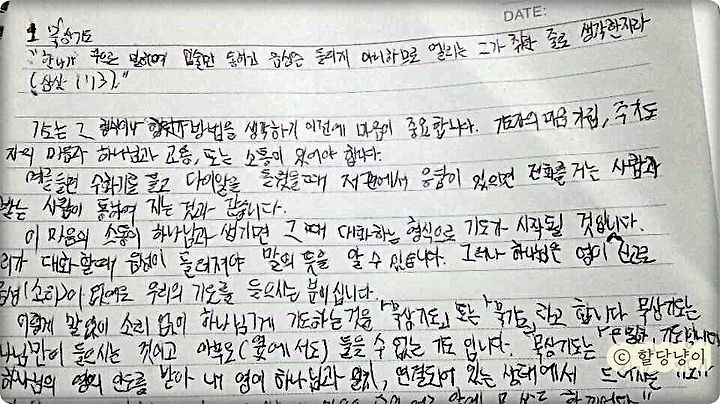 DATE:
1 묵상기도
"한나가 속으로 말하매 입술만 동하고 음성은 들리지 아니하므로 엘리는 그가 취한 줄로 생각한지라
(삼상 1:13)."
기도는 그 방법을 생각하기 이전에 마음이 중요합니다. 기도자의 마음처럼,
자의 마음과 하나님과 교통, 또는 소통이 있어야 합니다.
예를들면 수화기를 들고 다이알을 돌렸을때 저편에서 응답이 있으면 전화를 거는 사람과
받는 사람이 통하여 지는 것과 같습니다.
이 마음의 소통이 하나님과 생기면 그 때 대화하는 형식으로 기도가 시작될 것입니다.
리가 대화할때 음성이 들려져야 말의 뜻을 알 수 있습니다. 그러나 하나님은 영이신고로
음성(소리)이 없어도 우리의 기도를 들으시는 분이십니다.
이렇게 말없이 소리 없이 하나님께 기도하는 것을 「묵상기도」 또는 「묵기도」라고 합니다 묵상기도는
나님만이 들으시는 것이고 아무도(옆에서도) 들을 수 없는 기도 입니다. 묵상기도는
하나님의 영의 인도를 받아 내 영이 하나님과 연결되어 있는 상태에서
© 할당냥이